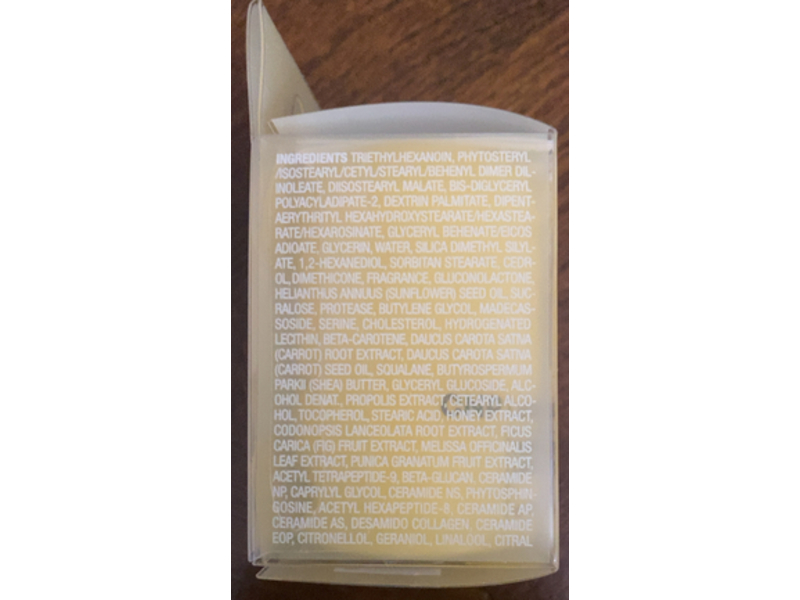 INGREDIENTS TRIETHYLHEXANOIN, PHYTOSTERYL
/ISOSTEARYL/CETYL/STEARYL/BEHENYL DIMER DIL-
INOLEATE, DIISOSTEARYL MALATE, BIS-DIGLYCERYL
POLYACYLADIPATE-2, DEXTRIN PALMITATE, DIPENT-
AERYTHRITYL HEXAHYDROXYSTEARATE/HEXASTEA-
RATE/HEXAROSINATE, GLYCERYL BEHENATE/EICOS
ADIOATE, GLYCERIN, WATER, SILICA DIMETHYL SILYL-
ATE, 1,2-HEXANEDIOL, SORBITAN STEARATE, CEDR-
OL, DIMETHICONE, FRAGRANCE, GLUCONOLACTONE,
HELIANTHUS ANNUUS (SUNFLOWER) SEED OIL, SUC-
RALOSE, PROTEASE, BUTYLENE GLYCOL, MADECAS-
SOSIDE, SERINE, CHOLESTEROL, HYDROGENATED
LECITHIN, BETA-CAROTENE, DAUCUS CAROTA SATIVA
(CARROT) ROOT EXTRACT, DAUCUS CAROTA SATIVA
(CARROT) SEED OIL, SQUALANE, BUTYROSPERMUM
PARKII (SHEA) BUTTER, GLYCERYL GLUCOSIDE, ALC-
OHOL DENAT., PROPOLIS EXTRACT, CETEARYL ALCO-
HOL, TOCOPHEROL, STEARIC ACID, HONEY EXTRACT,
CODONOPSIS LANCEOLATA ROOT EXTRACT, FICUS
CARICA (FIG) FRUIT EXTRACT, MELISSA OFFICINALIS
LEAF EXTRACT, PUNICA GRANATUM FRUIT EXTRACT,
ACETYL TETRAPEPTIDE-9, BETA-GLUCAN, CERAMIDE
NP, CAPRYLYL GLYCOL, CERAMIDE NS, PHYTOSPHIN-
GOSINE, ACETYL HEXAPEPTIDE-8, CERAMIDE AP,
CERAMIDE AS, DESAMIDO COLLAGEN, CERAMIDE
EOP, CITRONELLOL, GERANIOL, LINALOOL, CITRAL